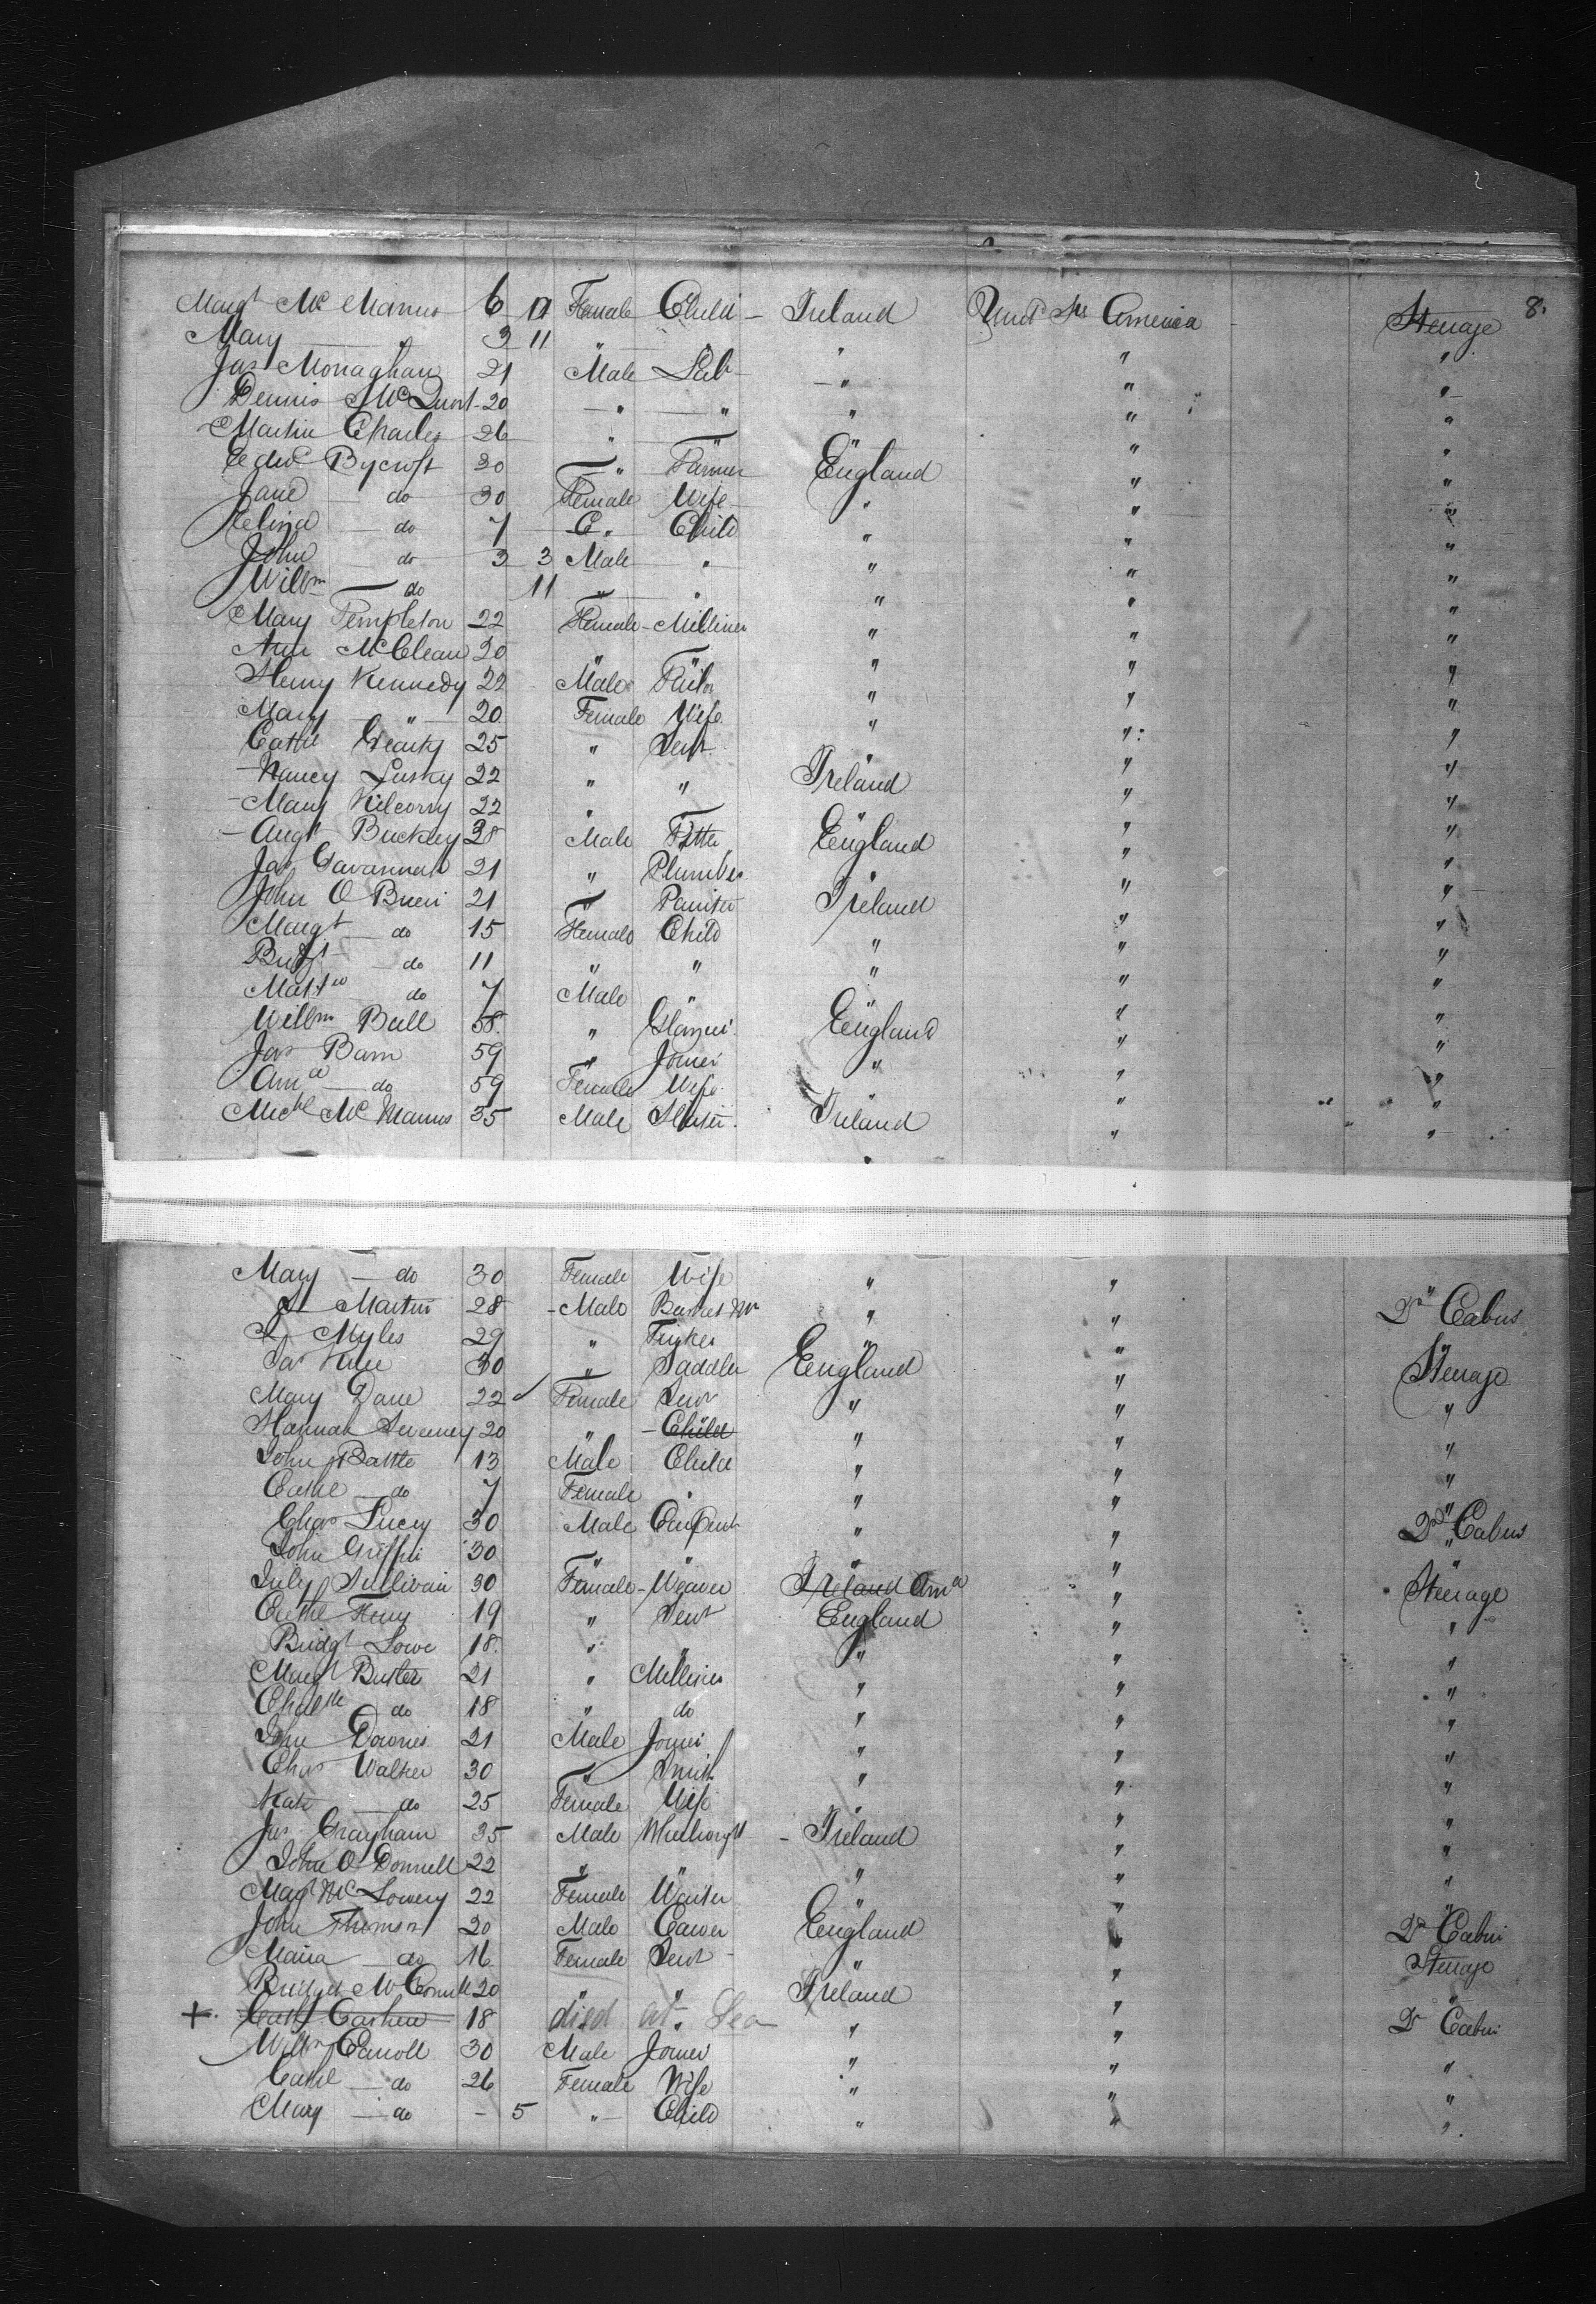 8.
Margt Mc Manus 6 11 Female Child - Ireland Unit Sts America Steerage
Mary " 3 11 " " " " "
Jas Monaghan 21 Male Lab - " " "
Dennis 20 - " - " " " "
Martin Charles 26 " " " "
Edwd Bycroft 30 " Farmer England " "
Jane do 30 Female Wife " " "
Selina do 7 Child " " "
John do 3 3 Male " " " "
Willm do 11 " " " " "
Mary Templeton 22 Female - Milliner " " "
Ann McClean 20 " " " " "
Henry Kennedy 22 Male Tailor " " "
Mary " 20 Female Wife " " "
Cathe 25 " Servt " " "
Nancy Lusky 22 " " Ireland " "
- Mary Kilcorry 22 " " " "
- Augt Buckley 38 Male Fitter England " "
Jas Gavannah 21 " Plumber " " "
John O Brien 21 " Painter Ireland " "
Margt do 15 Female Child " " "
Bridgt do 11 " " " " "
Mattw do 7 Male " " " "
Willm Bull 58 " England " "
Jas Barn 59 " Joiner " " "
Ama do 59 Female Wife " "
Michl Mc Manus 35 Male Ireland " "
Mary - do 30 Female Wife " "
Martin 28 - Male Basket Mr " " 2nd Cabin
Myles 29 " " " "
Jas 30 " Saddler England " Steerage
Mary Dane 22 Female Servt " " "
Hannah Sweeney 20 " - Child " " "
John Battle 13 Male Child " " "
Cathe do 7 Female " " " "
Chas Lucey 30 Male Carpentr " " 2nd Cabin
John Griffin 30 " " " " "
July Sullivan 30 Female - Weaver Ireland Ama " Steerage
Cathe 19 " Servt England " "
Bridgt Lowe 18 " " " " "
Margt Butler 21 " Milliner " " "
do 18 " do " " "
John Downes 21 Male Joiner " " "
Chas Walker 30 " Smith " " "
Kate do 25 Female Wife " " "
Jas Grayham 35 Male Wheelwright - Ireland " "
John O Donnell 22 " " " " "
Margt Mc Lowery 22 Female " " "
John Thomson 20 Male Carver England " 2nd Cabin
Maria do 16 Female Servt - " " Steerage
Bridget Mc 20 " " Ireland " "
+ Cathe Cashen 18 died at Sea " " 2nd Cabin
Willm Carroll 30 Male Joiner " " "
Cathe do 26 Female Wife " " "
Mary - do - 5 " Child " " "